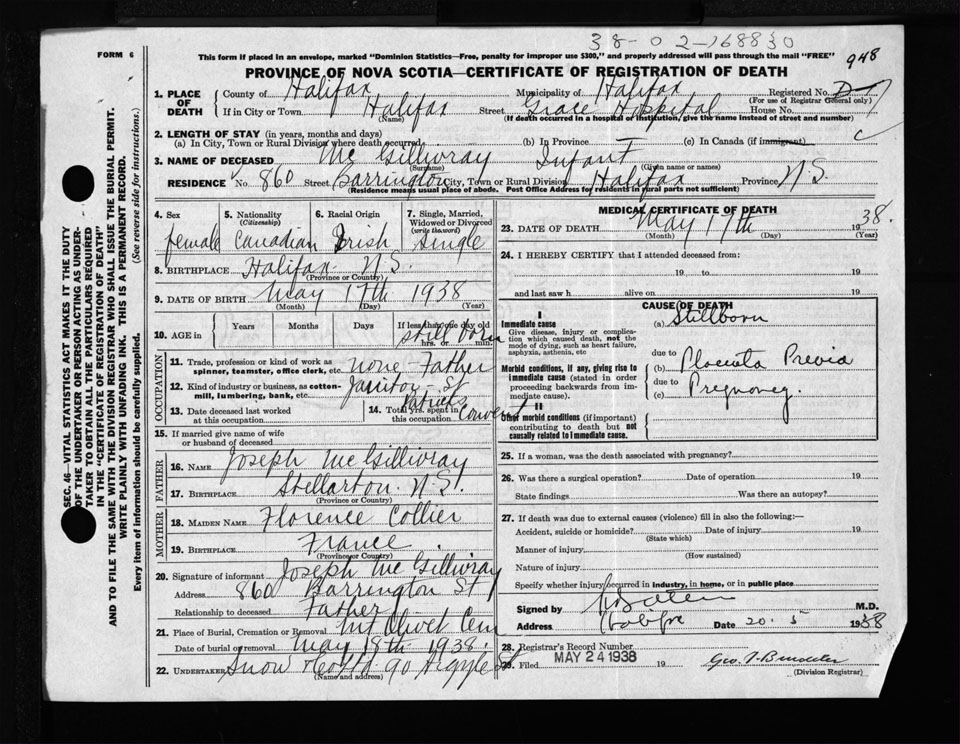 38-02-168830
FORM 6
This form if placed in an envelope, marked "Dominion Statistics—Free, penalty for improper use $300," and properly addressed will pass through the mail "FREE"
948
PROVINCE OF NOVA SCOTIA—CERTIFICATE OF REGISTRATION OF DEATH
1. PLACE OF DEATH County of Halifax Municipality of Halifax Registered No.
(For use of Registrar General only)
If in City or Town Halifax Street Grace Hospital House No.
(Name) (If death occurred in a hospital or institution, give the name instead of street and number)
2. LENGTH OF STAY (in years, months and days)
(a) In City, Town or Rural Division where death occurred (b) In Province (c) In Canada (if immigrant)
3. NAME OF DECEASED Mc Gillivray Infant
(Surname) (Given name or names)
RESIDENCE No. 860 Street Barrington City, Town or Rural Division Halifax Province N.S.
(Residence means usual place of abode. Post Office Address for residents in rural parts not sufficient)
SEC. 46—VITAL STATISTICS ACT MAKES IT THE DUTY
OF THE UNDERTAKER OR PERSON ACTING AS UNDER-
TAKER TO OBTAIN ALL THE PARTICULARS REQUIRED
IN THE "CERTIFICATE OF REGISTRATION OF DEATH"
AND TO FILE THE SAME WITH THE DIVISION REGISTRAR WHO SHALL ISSUE THE BURIAL PERMIT.
WRITE PLAINLY WITH UNFADING INK. THIS IS A PERMANENT RECORD.
Every item of information should be carefully supplied. (See reverse side for instructions.)
4. Sex 5. Nationality (Citizenship) 6. Racial Origin 7. Single, Married, Widowed or Divorced (write the word)
female Canadian Irish Single
8. BIRTHPLACE Halifax N.S.
(Province or Country)
9. DATE OF BIRTH May 17th 1938
(Month) (Day) (Year)
10. AGE in Years Months Days If less than one day old
hrs. or min.
still born
OCCUPATION
11. Trade, profession or kind of work as spinner, teamster, office clerk, etc. none - Father
12. Kind of industry or business, as cotton-mill, lumbering, bank, etc. Janitor - St
Patricks Convent
13. Date deceased last worked at this occupation 14. Total yrs. spent in this occupation
15. If married give name of wife or husband of deceased
FATHER
16. NAME Joseph Mc Gillivray
17. BIRTHPLACE Stellarton. N.S.
(Province or Country)
MOTHER
18. MAIDEN NAME Florence Collier
19. BIRTHPLACE France
(Province or Country)
20. Signature of informant Joseph Mc Gillivray
Address 860 Barrington St
Relationship to deceased Father
21. Place of Burial, Cremation or Removal Mt Olivet Cem
Date of burial or removal May 18th 1938
22. UNDERTAKER Snow & Co Ltd 90 Argyle St
(Name and address)
MEDICAL CERTIFICATE OF DEATH
23. DATE OF DEATH May 17th 1938.
(Month) (Day) (Year)
24. I HEREBY CERTIFY that I attended deceased from:
19 to 19
and last saw h alive on 19
CAUSE OF DEATH
I
Immediate cause (a) Stillborn
Give disease, injury or complication which caused death, not the mode of dying, such as heart failure, asphyxia, asthenia, etc
due to
Morbid conditions, if any, giving rise to immediate cause (stated in order proceeding backwards from immediate cause). (b) Placenta Previa
due to
(c) Pregnancy.
II
Other morbid conditions (if important) contributing to death but not causally related to immediate cause.
25. If a woman, was the death associated with pregnancy?
26. Was there a surgical operation? Date of operation 19
State findings Was there an autopsy?
27. If death was due to external causes (violence) fill in also the following:—
Accident, suicide or homicide? Date of injury 19
(State which)
Manner of injury
(How sustained)
Nature of injury
Specify whether injury occurred in industry, in home, or in public place
Signed by M.D.
Address Halifax Date 20. 5 1938
28. Registrar's Record Number
29. Filed MAY 24 1938 19
(Division Registrar)